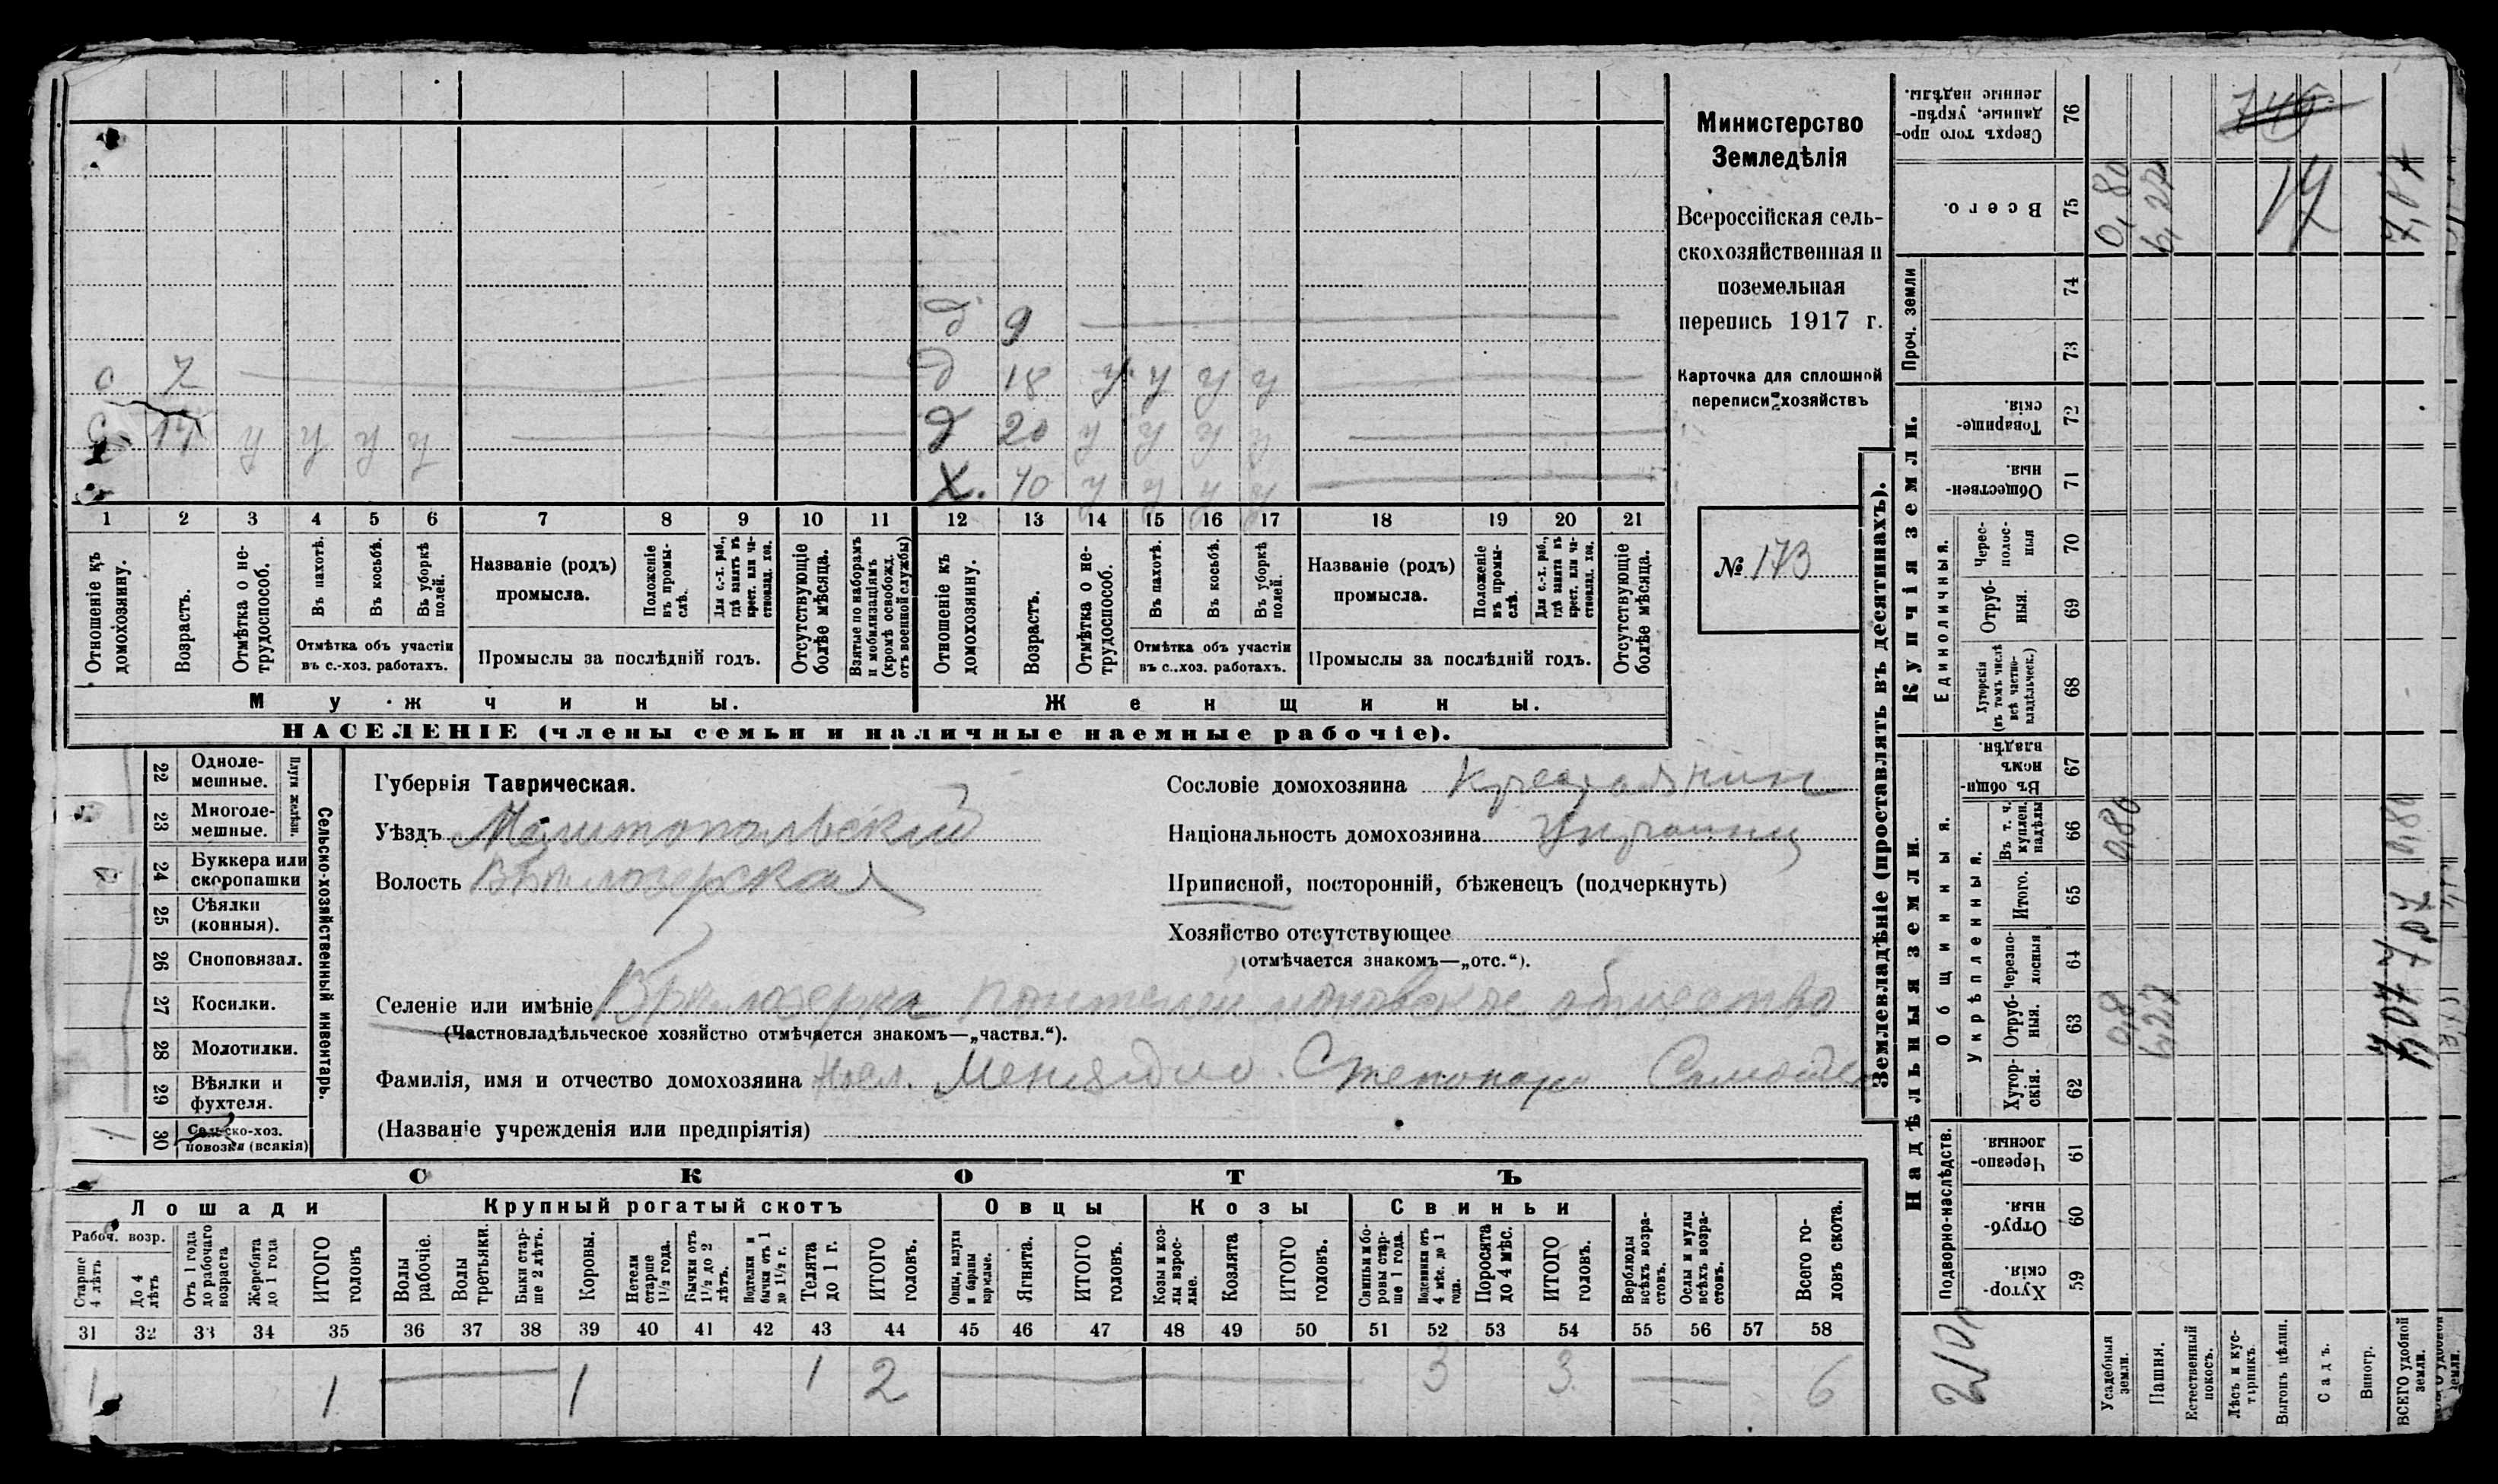 д 9
с 7
д 18 у у у у
с 17 у у у у
д 20 у у у у
х. 40 у у у у
1 2 3 4 5 6 7 8 9 10 11 12 13 14 15 16 17 18 19 20 21
Отношеніе къ домохозяину.
Возрастъ.
Отмѣтка о не-
трудоспособ.
Въ пахотѣ.
Въ косьбѣ.
Въ уборкѣ полей.
Отмѣтка объ участіи
въ с.-хоз. работахъ.
Названіе (родъ)
промысла.
Положеніе въ промы-
слѣ.
Для с.-х. раб., гдѣ занятъ въ крест. или ча-
стновлад. хоз.
Промыслы за послѣдній годъ.
Отсутствующіе болѣе мѣсяца.
Взятые по наборамъ и мобилизаціямъ (кромѣ освобожд. отъ военной службы)
Отношеніе къ домохозяину.
Возрастъ.
Отмѣтка о не-
трудоспособ.
Въ пахотѣ.
Въ косьбѣ.
Въ уборкѣ полей.
Отмѣтка объ участіи
въ с..хоз. работахъ.
Названіе (родъ)
промысла.
Положеніе въ промы-
слѣ.
Для с.-х. раб., гдѣ занята въ крест. или ча-
стновлад. хоз.
Промыслы за послѣдній годъ.
Отсутствующіе болѣе мѣсяца.
Мужчины.
Женщины.
НАСЕЛЕНІЕ (члены семьи и наличные наемные рабочіе).
Министерство
Земледѣлія
Всероссійская сель-
скохозяйственная и
поземельная
перепись 1917 г.
Карточка для сплошной
переписи хозяйствъ
№ 173
22 Одноле-
мешные.
23 Многоле-
мешные.
Плуги желѣзн.
24 Буккера или
скоропашки
25 Сѣялки
(конныя).
26 Сноповязал.
27 Косилки.
28 Молотилки.
29 Вѣялки и
фухтеля.
30 Сельско-хоз.
повозки (всякія)
1
Сельско-хозяйственный инвентарь.
Губернія Таврическая.
Уѣздъ Мелитопольскій
Волость Бѣлозерская
Сословіе домохозяина крестьянин
Національность домохозяина Украинец
Приписной, посторонній, бѣженецъ (подчеркнуть)
Хозяйство отсутствующее
(отмѣчается знакомъ—„отс.“).
Селеніе или имѣніе Бѣлозерка Пантелеймоновское общество
(Частновладѣльческое хозяйство отмѣчается знакомъ—„частвл.“).
Фамилія, имя и отчество домохозяина
(Названіе учрежденія или предпріятія)
СКОТЪ
Лошади
Крупный рогатый скотъ
Овцы
Козы
Свиньи
Рабоч. возр.
Старше 4 лѣтъ
До 4 лѣтъ
Отъ 1 года до рабочаго возраста
Жеребята до 1 года
ИТОГО головъ
Волы рабочіе.
Волы третьяки.
Быки стар-
ше 2 лѣтъ.
Коровы.
Нетели старше 1½ года.
Бычки отъ 1½ до 2 лѣтъ.
Подтелки и бычки отъ 1 до 1½ г.
Телята до 1 г.
ИТОГО головъ.
Овцы, валухи и бараны взрослые.
Ягнята.
ИТОГО головъ.
Козы и коз-
лы взрос-
лые.
Козлята
ИТОГО головъ.
Свиньи и бо-
ровы стар-
ше 1 года.
Подсвинки отъ 4 мѣс. до 1 года.
Поросята до 4 мѣс.
ИТОГО головъ.
Верблюды всѣхъ возра-
стовъ.
Ослы и мулы всѣхъ возра-
стовъ.
Всего го-
ловъ скота.
31 32 33 34 35 36 37 38 39 40 41 42 43 44 45 46 47 48 49 50 51 52 53 54 55 56 57 58
1 1 1 1 2 3 3 6
Землевладѣніе (проставлять въ десятинахъ).
Надѣльныя земли.
Купчія земли.
Проч. земли
Сверхъ того про-
данные, укрѣп-
ленные надѣлы.
76
Всего.
75
0,80
6,27
17
7,07
74
73
Товарище-
скія.
72
Обществен-
ныя.
71
Единоличныя.
Черес-
полос-
ныя
70
Отруб-
ныя.
69
Хуторскія
(въ томъ числѣ
всѣ частно-
владѣльчек.)
68
Общинныя.
Въ общи-
номъ
владѣн.
67
Укрѣпленныя.
Въ т. ч.
куплен.
надѣлы
66
0,80
0,80
Итого.
65
Черезпо-
лосныя
64
Отруб-
ныя.
63
0,8
6,27
7,07
Хутор-
скія.
62
Подворно-наслѣдств.
Черезпо-
лосныя.
61
Отруб-
ныя.
60
Хутор-
скія.
59
Усадебныя земли.
Пашня.
Естественный покосъ.
Лѣсъ и кус-
тарникъ.
Выгонъ цѣлин.
Садъ.
Виногр.
ВСЕГО удобной земли.